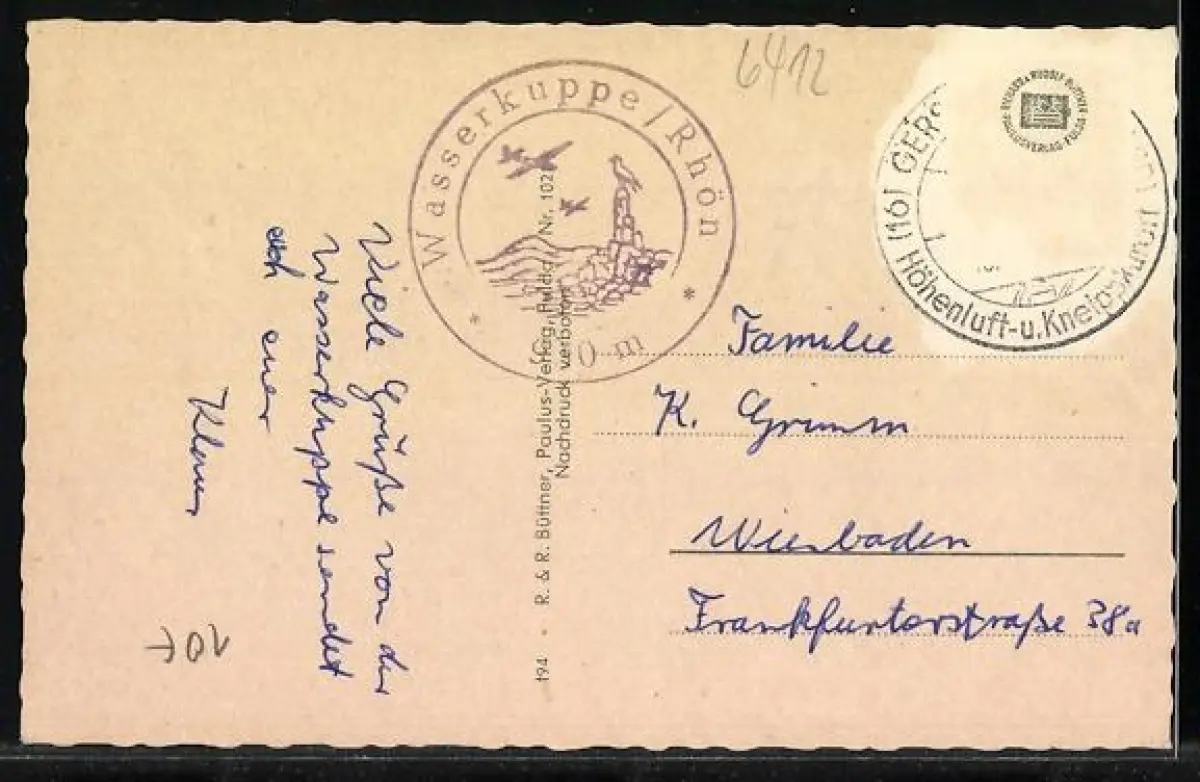 6412
Wasserkuppe/Rhön
0 m
(16) GERS
Höhenluft-u.Kneipp
RUDOLF BÜTTNER
PAULUSVERLAG FULDA
Viele Grüße von der
Wasserkuppe sendet
euch euer
Klaus
194 · R. & R. Büttner, Paulus-Verlag, Fulda Nr. 102
Nachdruck verboten
Familie
K. Grimm
Wiesbaden
Frankfurterstraße 38a